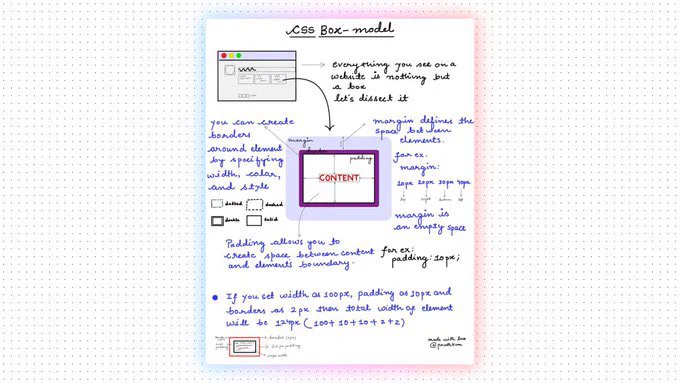 CSS Box-model
everything you see on a
website is nothing but
a box
let's dissect it
you can create
borders
around element
by specifying
width, color,
and style
dotted
dashed
double
solid
margin
border
padding
CONTENT
margin defines the
space between
elements.
for ex.
margin:
10px 20px 30px 40px
top right bottom left
margin is
an empty space
Padding allows you to
create space between content
and elements boundary.
for ex:
padding: 10px;
If you set width as 100px, padding as 10px and
borders as 2px then total width of element
will be 124px (100+10+10+2+2)
made with love